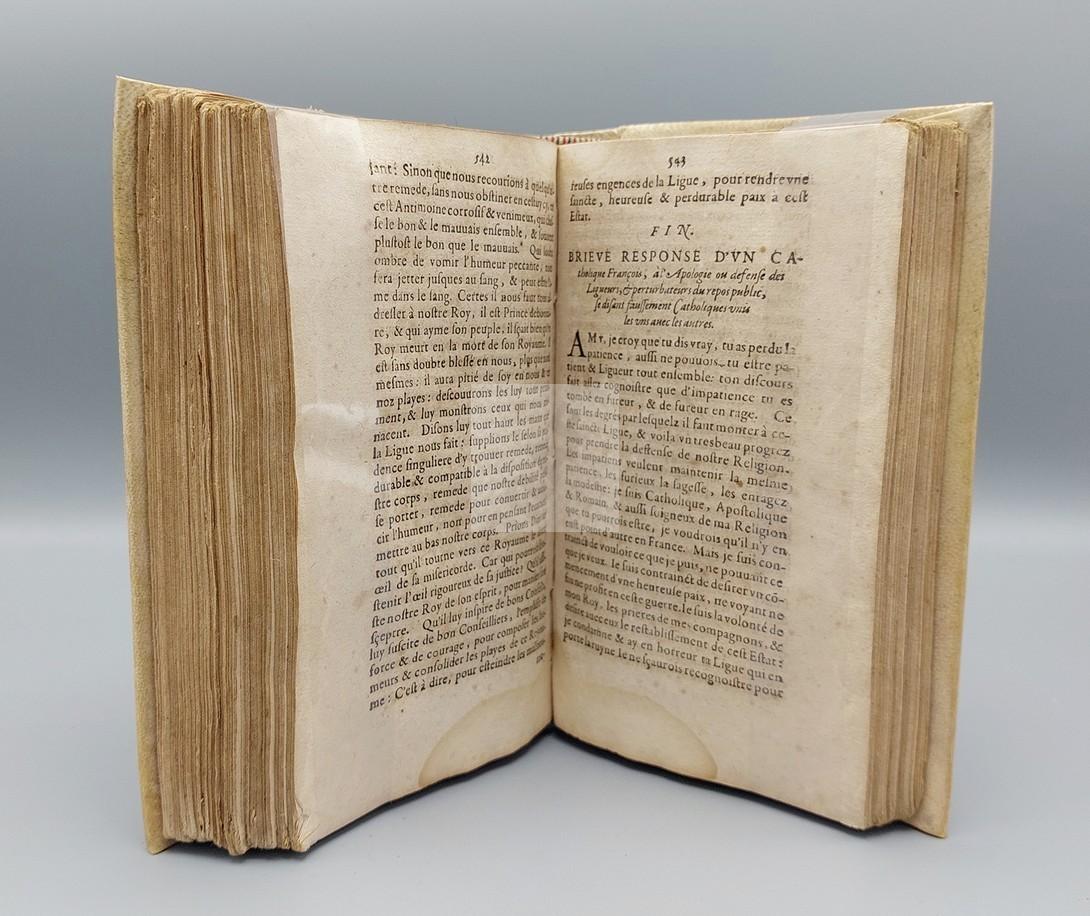 542
sant? Sinon que nous recourions à quelqu'au-
tre remede, sans nous obstiner en cestuy cy, en
cest Antimoine corrosif & venimeux, qui chas-
se le bon & le mauuais ensemble, & souuent
plustost le bon que le mauuais. Qui soubs
ombre de vomir l'humeur peccante, nous
fera jetter jusques au sang, & peut estre l'a-
me dans le sang. Certes il nous faut tous a-
dresser à nostre Roy, il est Prince debonnai-
re, & qui ayme son peuple, il sçait bien qu'vn
Roy meurt en la mort de son Royaume. Il
est sans doubte blessé en nous, plus que nous
mesmes: il aura pitié de soy en nous & de
noz playes: descouurons les luy tout
ment, & luy monstrons ceux qui nous me-
nacent. Disons luy tout haut les maux que
la Ligue nous fait: supplions le selon sa pru-
dence singuliere d'y trouuer remede, remede
durable & compatible à la disposition de no-
stre corps, remede que nostre debilité puis-
se porter, remede pour conuertir & adou-
cir l'humeur, non pour en pensant l'euacuer
mettre au bas nostre corps. Prions Dieu sur
tout qu'il tourne vers ce Royaume le doux
œil de sa misericorde. Car qui pourroit sou-
stenir l'œil rigoureux de sa justice? Qu'il assi-
ste nostre Roy de son esprit, pour manier son
sceptre. Qu'il luy inspire de bons Conseils,
luy suscite de bon Conseilliers, l'emplisse de
force & de courage, pour composer les hu-
meurs & consolider les playes de ce Royau-
me: C'est à dire, pour esteindre les malheu-
543
reuses engences de la Ligue, pour rendre vne
saincte, heureuse & perdurable paix à cest
Estat.
FIN.
BRIEVE RESPONSE D'VN CA-
tholique François, à l'Apologie ou defense des
Ligueurs, & perturbateurs du repos public,
se disant faussement Catholiques vnis
les vns auec les autres.
AMY, je croy que tu dis vray, tu as perdu la
patience, aussi ne pouuois-tu estre pa-
tient & Ligueur tout ensemble: ton discours
fait assez cognoistre que d'impatience tu es
tombé en fureur, & de fureur en rage. Ce
sont les degrés par lesquelz il faut monter à ce-
ste saincte Ligue, & voila vn tresbeau progrez
pour prendre la deffense de nostre Religion.
Les impatiens veulent maintenir la mesme
patience, les furieux la sagesse, les enragez
la modestie: je suis Catholique, Apostolique
& Romain, & aussi soigneux de ma Religion
que tu pourrois estre, je voudrois qu'il n'y en
eust point d'autre en France. Mais je suis con-
trainct de vouloir ce que je puis, ne pouuant ce
que je veux. Je suis contrainct de desirer vn cō-
mencement d'vne heureuse paix, ne voyant no
fin ne profit en ceste guerre. Je suis la volonté de
mon Roy, les prieres de mes compagnons, &
desire auec eux le restablissement de cest Estat:
je condamne & ay en horreur ta Ligue qui en
porte la ruyne. Je ne sçaurois recognoistre pour